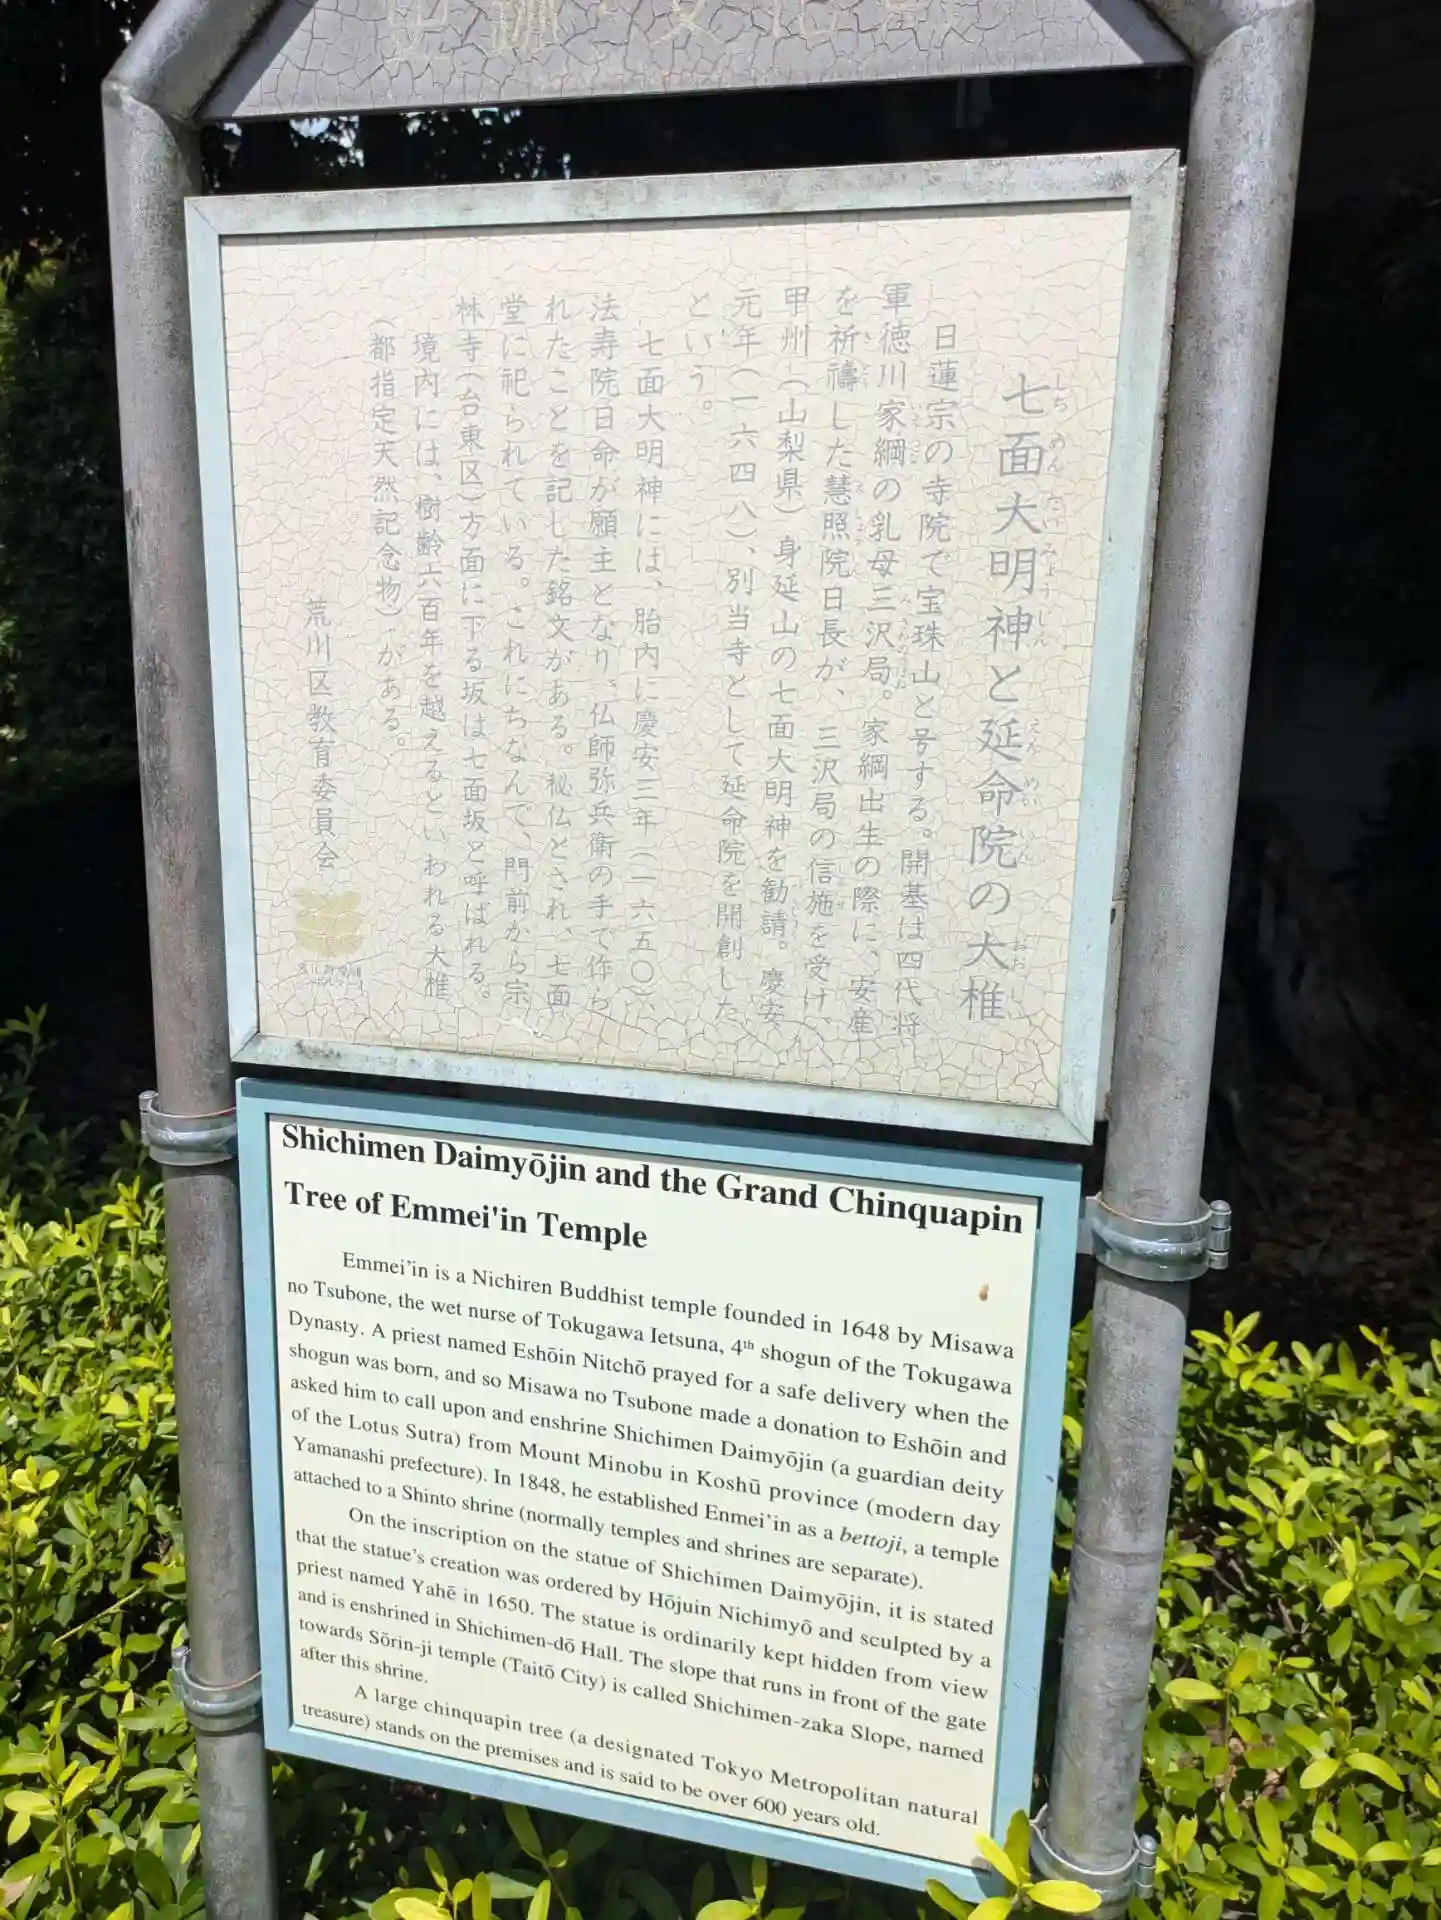 史跡・文化財
七面大明神と延命院の大椎
しちめんだいみょうじん えんめいいん おおじい
日蓮宗の寺院で宝珠山と号する。開基は四代将
軍徳川家綱の乳母三沢局。家綱出生の際に、安産
を祈禱した慧照院日長が、三沢局の信施を受け、
甲州（山梨県）身延山の七面大明神を勧請。慶安
元年（一六四八）、別当寺として延命院を開創した
という。
七面大明神には、胎内に慶安三年（一六五〇）、
法寿院日命が願主となり、仏師弥兵衛の手で作ら
れたことを記した銘文がある。秘仏とされ、七面
堂に祀られている。これにちなんで、門前から宗
林寺（台東区）方面に下る坂は七面坂と呼ばれる。
境内には、樹齢六百年を越えるといわれる大椎
（都指定天然記念物）がある。
荒川区教育委員会
Shichimen Daimyōjin and the Grand Chinquapin
Tree of Emmei'in Temple
Emmei'in is a Nichiren Buddhist temple founded in 1648 by Misawa
no Tsubone, the wet nurse of Tokugawa Ietsuna, 4th shogun of the Tokugawa
Dynasty. A priest named Eshōin Nitchō prayed for a safe delivery when the
shogun was born, and so Misawa no Tsubone made a donation to Eshōin and
asked him to call upon and enshrine Shichimen Daimyōjin (a guardian deity
of the Lotus Sutra) from Mount Minobu in Koshū province (modern day
Yamanashi prefecture). In 1848, he established Enmei'in as a bettoji, a temple
attached to a Shinto shrine (normally temples and shrines are separate).
On the inscription on the statue of Shichimen Daimyōjin, it is stated
that the statue's creation was ordered by Hōjuin Nichimyō and sculpted by a
priest named Yahē in 1650. The statue is ordinarily kept hidden from view
and is enshrined in Shichimen-dō Hall. The slope that runs in front of the gate
towards Sōrin-ji temple (Taitō City) is called Shichimen-zaka Slope, named
after this shrine.
A large chinquapin tree (a designated Tokyo Metropolitan natural
treasure) stands on the premises and is said to be over 600 years old.